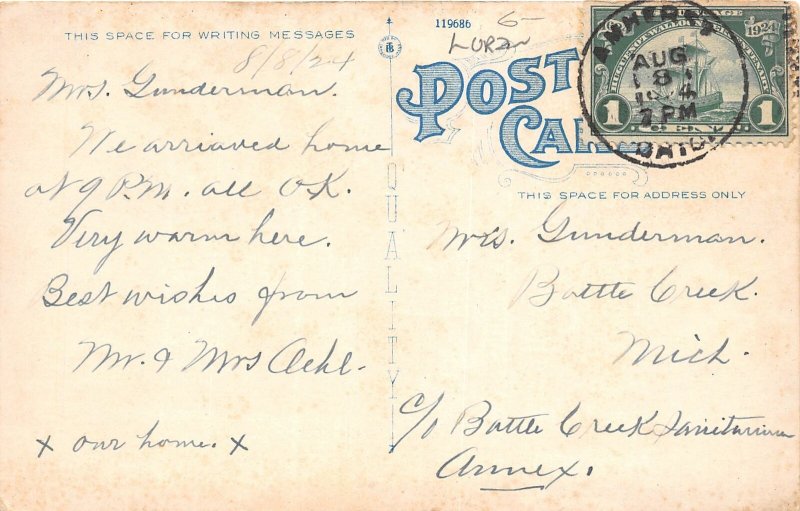 THIS SPACE FOR WRITING MESSAGES
8/8/24
Mrs. Gunderman.
We arriaved home
at 9 P.M. all O.K.
Very warm here.
Best wishes from
Mr. & Mrs Oehl.
x our home. x
QUALITY
119686
6-
LORAN
POST CARD
THIS SPACE FOR ADDRESS ONLY
1924
1 1
AMHERST
AUG
8
1924
7 PM
OHIO.
Mrs. Gunderman.
Battle Creek.
Mich.
c/o Battle Creek Sanitarium
Annex.